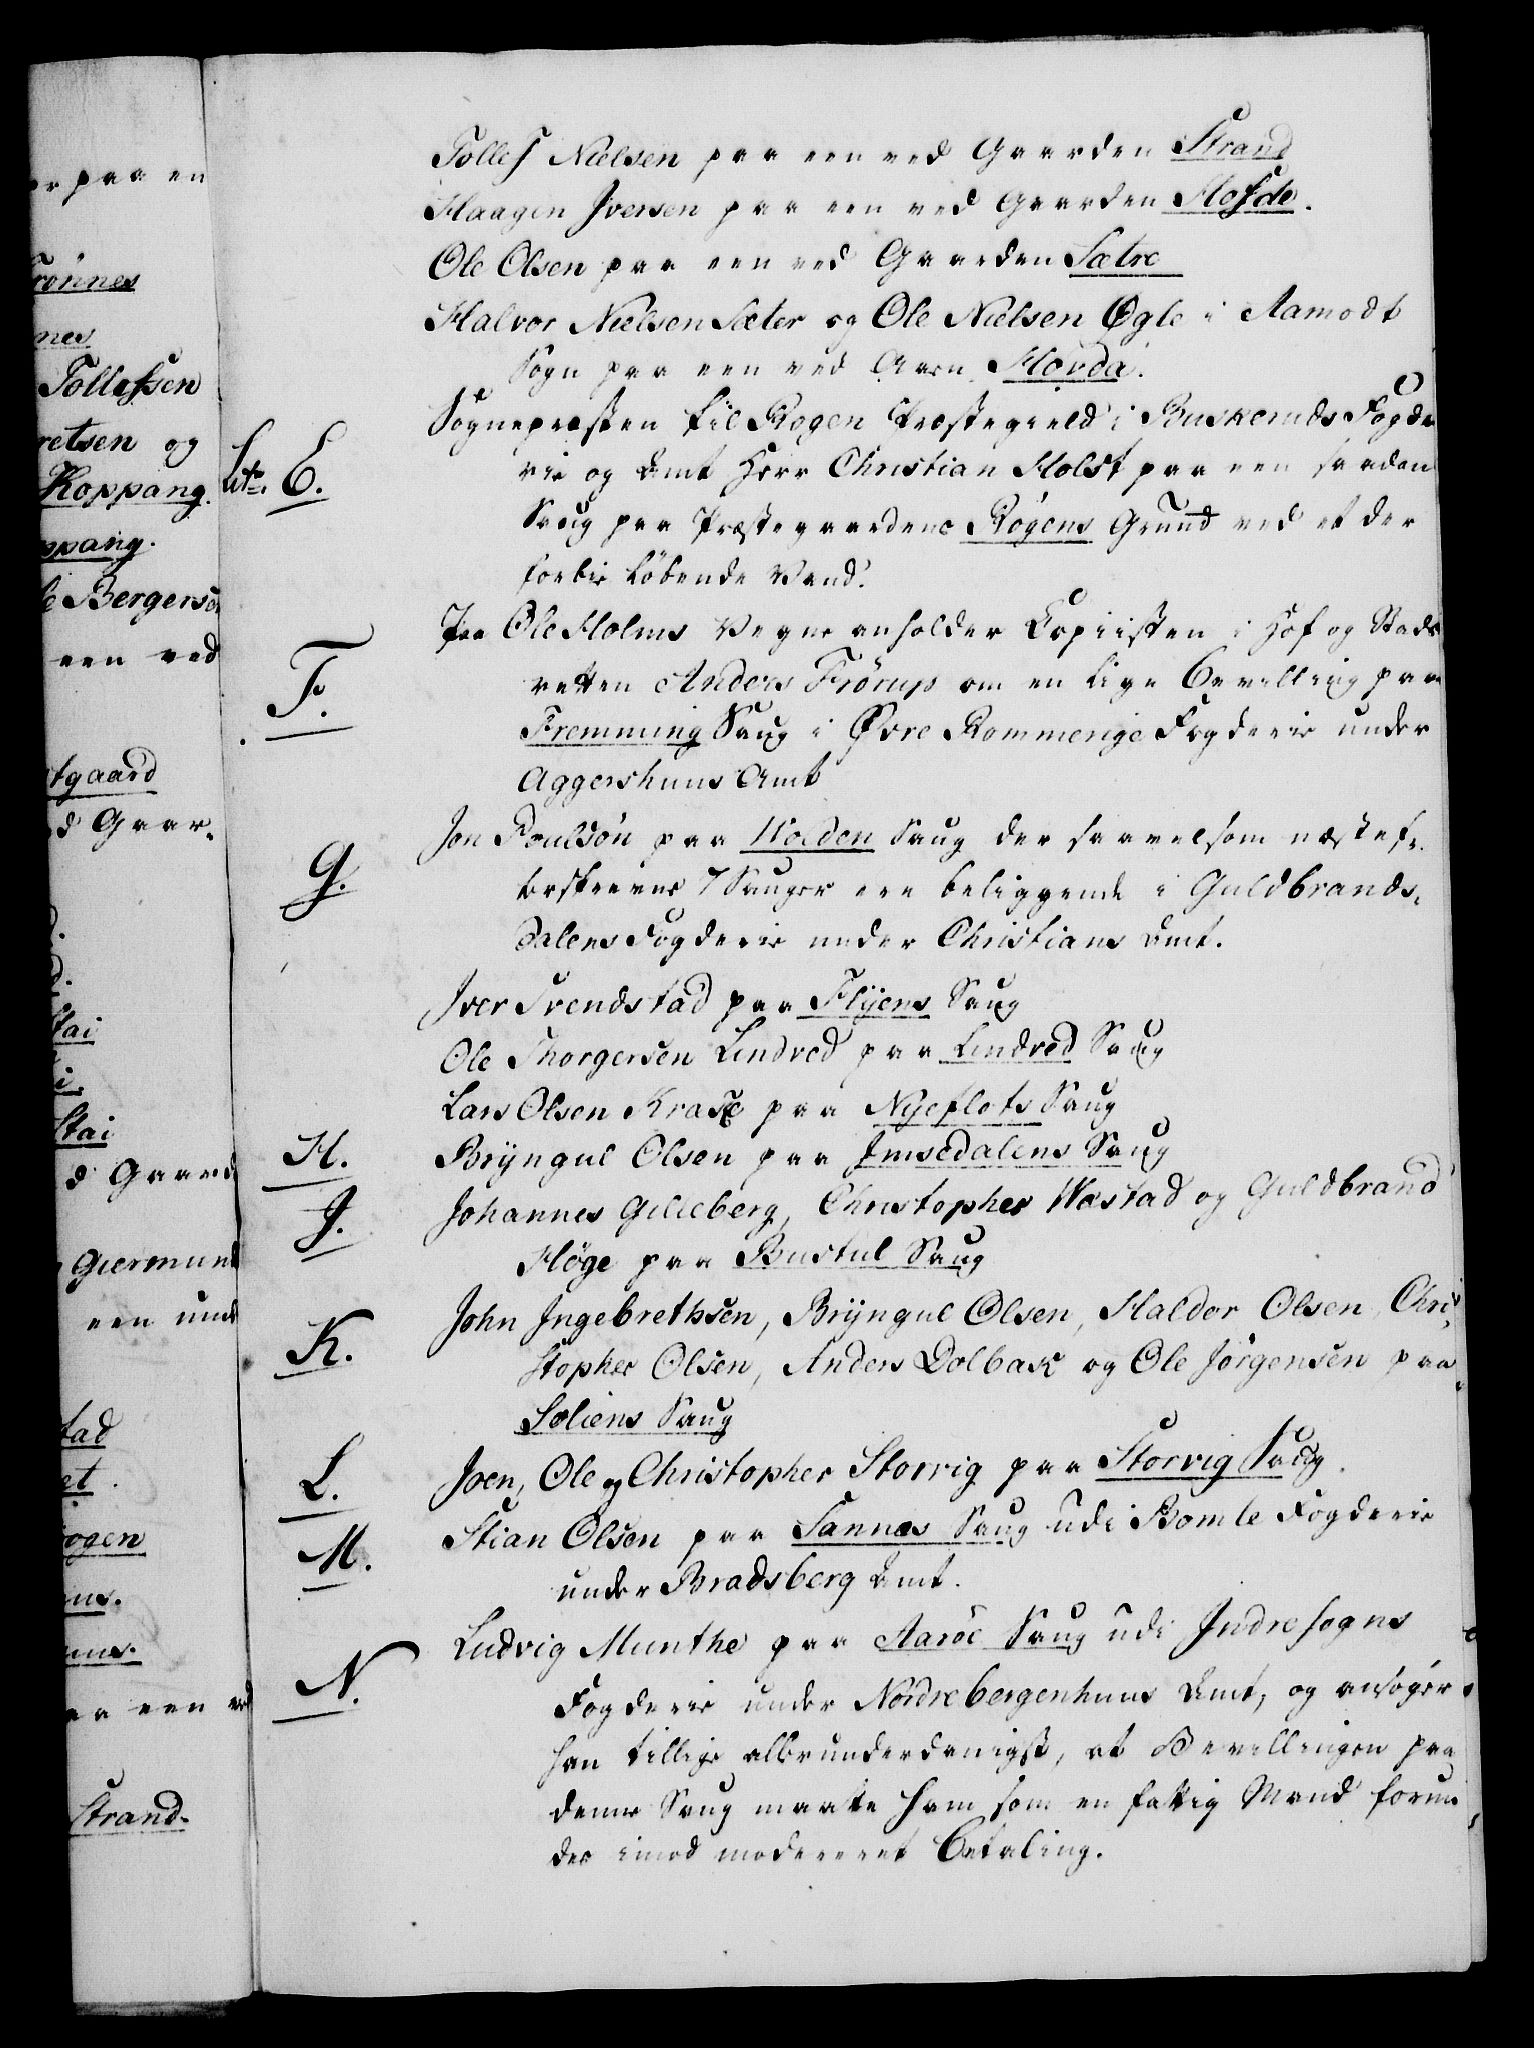 Tollef Nielsen paa een ved Gaarden Strand
Haagen Iversen paa een ved Gaarden Hofde.
Ole Olsen paa een ved Gaarden Sætre
Halvor Nielsen Sæter og Ole Nielsen Øgle i Aamodt
Sogn paa een ved Aaen Horda.
Litr. E. Sognepræsten til Rogen Præstegield i Buskeruds Fogde
rie og Amt Herr Christian Holst paa een saadan
Saug paa Præstegaardens Røgens Grund ved et der
forbie løbende Vand.
F. Paa Ole Holms Vegne anholder Copiisten i Hof og Stads
retten Anders Frørup om en lige Bevilling paa
Fremming Saug i Øvre Rommerige Fogderie under
Aggershuus Amt
G. Jon Poulsøn paa Wolden Saug der saavelsom næstef-
terskrevne 7 Sauger ere beliggende i Guldbrands-
dalens Fogderie under Christians Amt.
Iver Svendstad paa Flÿens Saug
Ole Thorgersen Lindved paa Lindved Saug
Lars Olsen Krase paa Nÿeflots Saug
H. Brÿngul Olsen paa Imsedalens Saug
J. Johannes Gilleberg, Christopher Wæstad og Guldbrand
Høge paa Bustul Saug
K. John Ingebrethsen, Brÿngul Olsen, Haldor Olsen, Chri-
stopher Olsen, Anders Dolbak og Ole Jørgensen paa
Soliens Saug
L. Joen, Ole og Christopher Storvig paa Storvig Saug.
M. Stian Olsen paa Sannes Saug udi Bomle Fogderie
under Bradsberg Amt.
N. Ludvig Munthe paa Aarøe Saug udi Indresogns
Fogderie under Nordrebergenhuus Amt, og ansøger
han tillige allerunderdanigst, at Bevillingen paa
denne Saug maatte ham som en fattig Mand forun
des imod modereret Betaling.